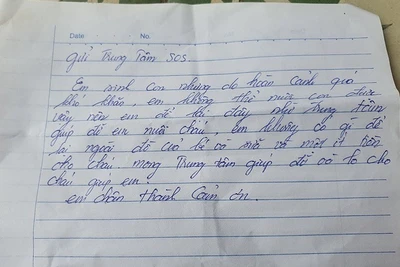 Date No.
gửi Trung Tâm SOS.
Em sinh con nhưng do hoàn cảnh quá
khó khăn, em không thể nuôi con được
vậy nên em để lại đây nhờ trung tâm
giúp đỡ em nuôi cháu, em không có gì để
lại ngoài đồ của bé và sữa và một ít tiền
cho cháu. mong Trung tâm giúp đỡ và lo cho
cháu giúp em.
em chân thành Cảm ơn.